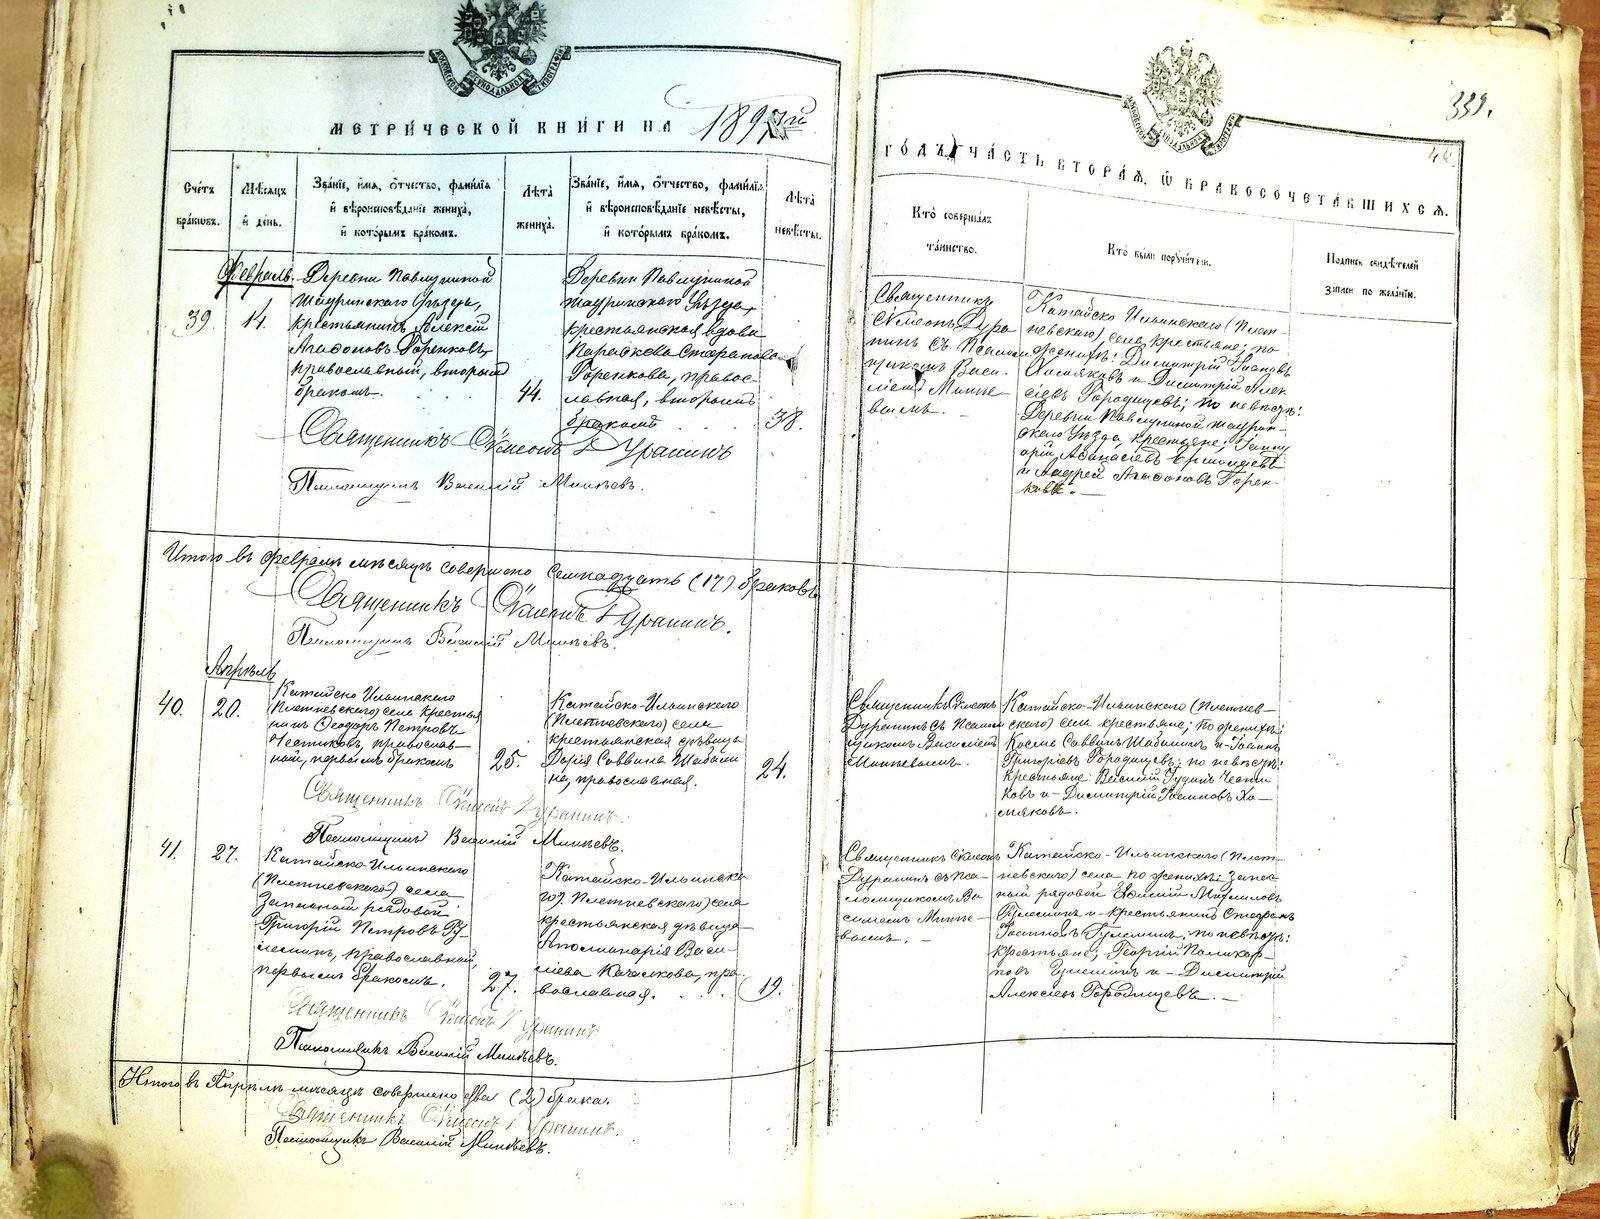 МЕТРИЧЕСКОЙ КНИГИ НА 1897й
ГОДЪ, ЧАСТЬ ВТОРАЯ, Ѿ БРАКОСОЧЕТАВШИХСЯ.
339.
Счетъ браковъ.
Мѣсяцъ и день.
Званіе, имя, отчество, фамилія
и вѣроисповѣданіе жениха,
и которымъ бракомъ.
Лѣта жениха.
Званіе, имя, отчество, фамилія
и вѣроисповѣданіе невѣсты,
и которымъ бракомъ.
Лѣта невѣсты.
Кто совершалъ
таинство.
Кто были поручители.
Подпись свидѣтелей
записи по желанію.
Февраль.
39.
14.
Деревни Павлушиной
Шадринскаго Уѣзда,
крестьянинъ Алексѣй
Агафоновъ Горенковъ,
православный, вторымъ
бракомъ.
44.
Деревни Павлушиной
Шадринскаго Уѣзда,
крестьянская вдова
Параскева
Горенкова, правос-
лавная, вторымъ
бракомъ
38.
Священникъ
Симеонъ Дура
нинъ съ Псалом
щикомъ Васи-
ліемъ Минѣе-
вымъ.
Катайско Ильинскаго (Плет-
невскаго) села крестьяне; по
женихѣ: Димитрій Іоановъ
Хомяковъ и Димитрій Алек
сѣевъ Городищевъ; по невѣстѣ:
Деревни Павлушиной Шадрин-
скаго Уѣзда, крестьяне:
Аѳанасіевъ Ермолаевъ
и Андрей Агафоновъ Горен-
ковъ.
Священникъ Симеонъ Дуранинъ
Псаломщикъ Василій Минѣевъ.
Итого въ Февралѣ мѣсяцѣ совершено семнадцать (17) браковъ
Священникъ Симеонъ Дуранинъ.
Псаломщикъ Василій Минѣевъ.
Апрѣль
40.
20.
Катайско Ильинскаго
(Плетневскаго) села крестья
нинъ Ѳеодоръ Петровъ
Честиковъ, православ-
ный, первымъ бракомъ
25.
Катайско-Ильинскаго
(Плетневскаго) села
крестьянская дѣвица
Дарія Саввина Шабали
на, православная.
24.
Священникъ Симеонъ
Дуранинъ съ Псалом
щикомъ Василіемъ
Минѣевымъ.
Катайско-Ильинскаго (Плетнев-
скаго) села крестьяне; по женихѣ:
Косма Саввинъ Шабалинъ и Іоаннъ
Григорьевъ Городищевъ; по невѣстѣ:
крестьяне: Василій Честин-
ковъ и Димитрій Іоанновъ Хо-
мяковъ.
Священникъ Симеонъ Дуранинъ.
Псаломщикъ Василій Минѣевъ.
41.
27.
Катайско-Ильинскаго
(Плетневскаго) села
запасный рядовой
Григорій Петровъ Гу-
леминъ, православный,
первымъ бракомъ.
27.
Катайско-Ильинска-
го (Плетневскаго) села
крестьянская дѣвица
Аполинарія Васи-
ліева Качалкова, пра
вославная.
19.
Священникъ Симеонъ
Дуранинъ съ Пса-
ломщикомъ Ва
силіемъ Минѣе-
вымъ.
Катайско-Ильинскаго (Плет-
невскаго) села по женихѣ: запас
ный рядовой
Гулеминъ и крестьянинъ Стефанъ
Гулеминъ; по невѣстѣ:
крестьяне; Георгій Поликар-
повъ Гулеминъ и Димитрій
Алексѣевъ Городищевъ.
Священникъ Симеонъ Дуранинъ
Псаломщикъ Василій Минѣевъ.
Итого въ Апрѣлѣ мѣсяцѣ совершено два (2) брака.
Священникъ Симеонъ Дуранинъ.
Псаломщикъ Василій Минѣевъ.